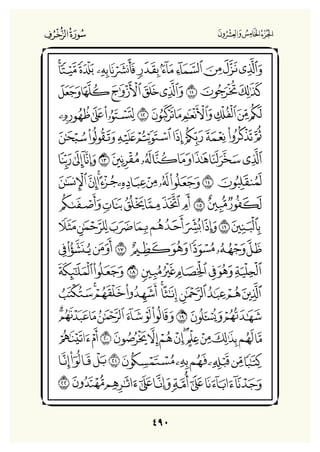 الجُزْءُ الخَامِسُ وَالعِشْرُونَ سُورَةُ الزُّخْرُفِ
وَٱلَّذِى نَزَّلَ مِنَ ٱلسَّمَآءِ مَآءَۢ بِقَدَرٍ فَأَنشَرْنَا بِهِۦ بَلْدَةً مَّيْتًا ۚ
كَذَٰلِكَ تُخْرَجُونَ ١١ وَٱلَّذِى خَلَقَ ٱلْأَزْوَٰجَ كُلَّهَا وَجَعَلَ
لَكُم مِّنَ ٱلْفُلْكِ وَٱلْأَنْعَٰمِ مَا تَرْكَبُونَ ١٢ لِتَسْتَوُۥا۟ عَلَىٰ ظُهُورِهِۦ
ثُمَّ تَذْكُرُوا۟ نِعْمَةَ رَبِّكُمْ إِذَا ٱسْتَوَيْتُمْ عَلَيْهِ وَتَقُولُوا۟ سُبْحَٰنَ
ٱلَّذِى سَخَّرَ لَنَا هَٰذَا وَمَا كُنَّا لَهُۥ مُقْرِنِينَ ١٣ وَإِنَّآ إِلَىٰ رَبِّنَا
لَمُنقَلِبُونَ ١٤ وَجَعَلُوا۟ لَهُۥ مِنْ عِبَادِهِۦ جُزْءًا ۚ إِنَّ ٱلْإِنسَٰنَ
لَكَفُورٌ مُّبِينٌ ١٥ أَمِ ٱتَّخَذَ مِمَّا يَخْلُقُ بَنَاتٍ وَأَصْفَىٰكُم
بِٱلْبَنِينَ ١٦ وَإِذَا بُشِّرَ أَحَدُهُم بِمَا ضَرَبَ لِلرَّحْمَٰنِ مَثَلًا
ظَلَّ وَجْهُهُۥ مُسْوَدًّا وَهُوَ كَظِيمٌ ١٧ أَوَمَن يُنَشَّؤُا۟ فِى
ٱلْحِلْيَةِ وَهُوَ فِى ٱلْخِصَامِ غَيْرُ مُبِينٍ ١٨ وَجَعَلُوا۟ ٱلْمَلَٰٓئِكَةَ
ٱلَّذِينَ هُمْ عِبَٰدُ ٱلرَّحْمَٰنِ إِنَٰثًا ۚ أَشَهِدُوا۟ خَلْقَهُمْ ۚ سَتُكْتَبُ
شَهَٰدَتُهُمْ وَيُسْـَٔلُونَ ١٩ وَقَالُوا۟ لَوْ شَآءَ ٱلرَّحْمَٰنُ مَا عَبَدْنَٰهُم ۗ
مَّا لَهُم بِذَٰلِكَ مِنْ عِلْمٍ ۖ إِنْ هُمْ إِلَّا يَخْرُصُونَ ٢٠ أَمْ ءَاتَيْنَٰهُمْ
كِتَٰبًا مِّن قَبْلِهِۦ فَهُم بِهِۦ مُسْتَمْسِكُونَ ٢١ بَلْ قَالُوٓا۟ إِنَّا
وَجَدْنَآ ءَابَآءَنَا عَلَىٰٓ أُمَّةٍ وَإِنَّا عَلَىٰٓ ءَاثَٰرِهِم مُّهْتَدُونَ ٢٢
٤٩٠